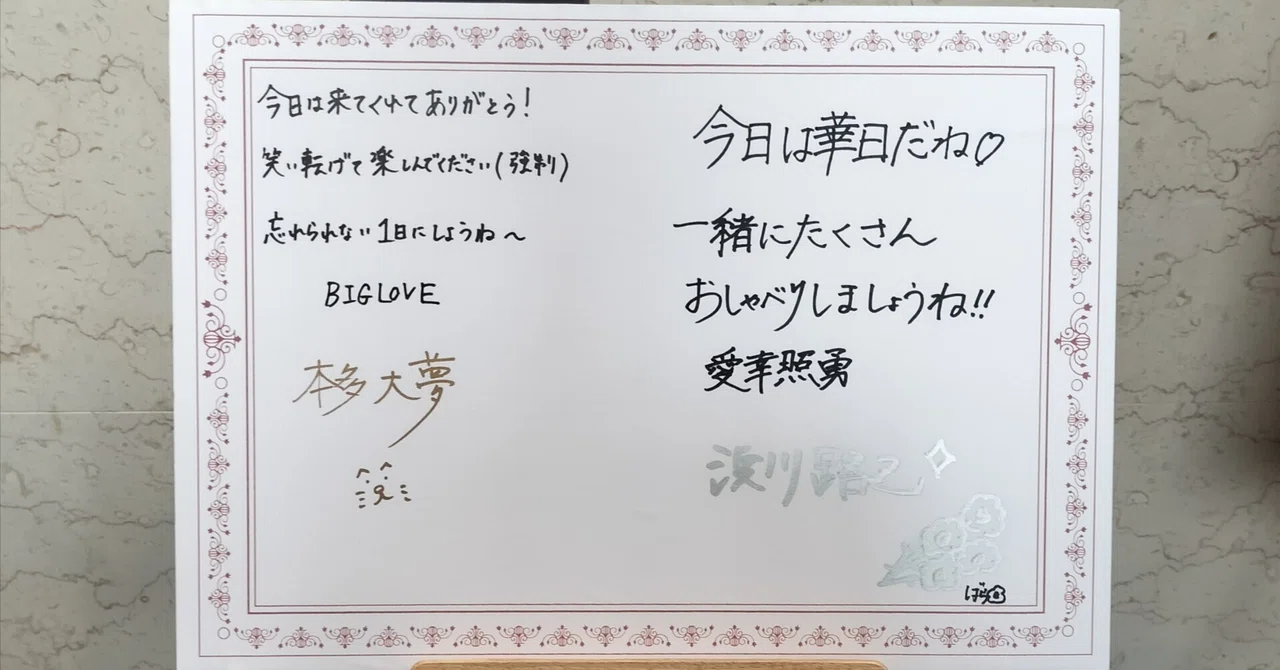 今日は来てくれてありがとう!
笑い転げて楽しんでください(強制)
忘れられない1日にしようね〜
BIGLOVE
本多大夢
今日は華日だね♡
一緒にたくさん
おしゃべりしましょうね!!
愛幸照勇
浜川路己
ばら